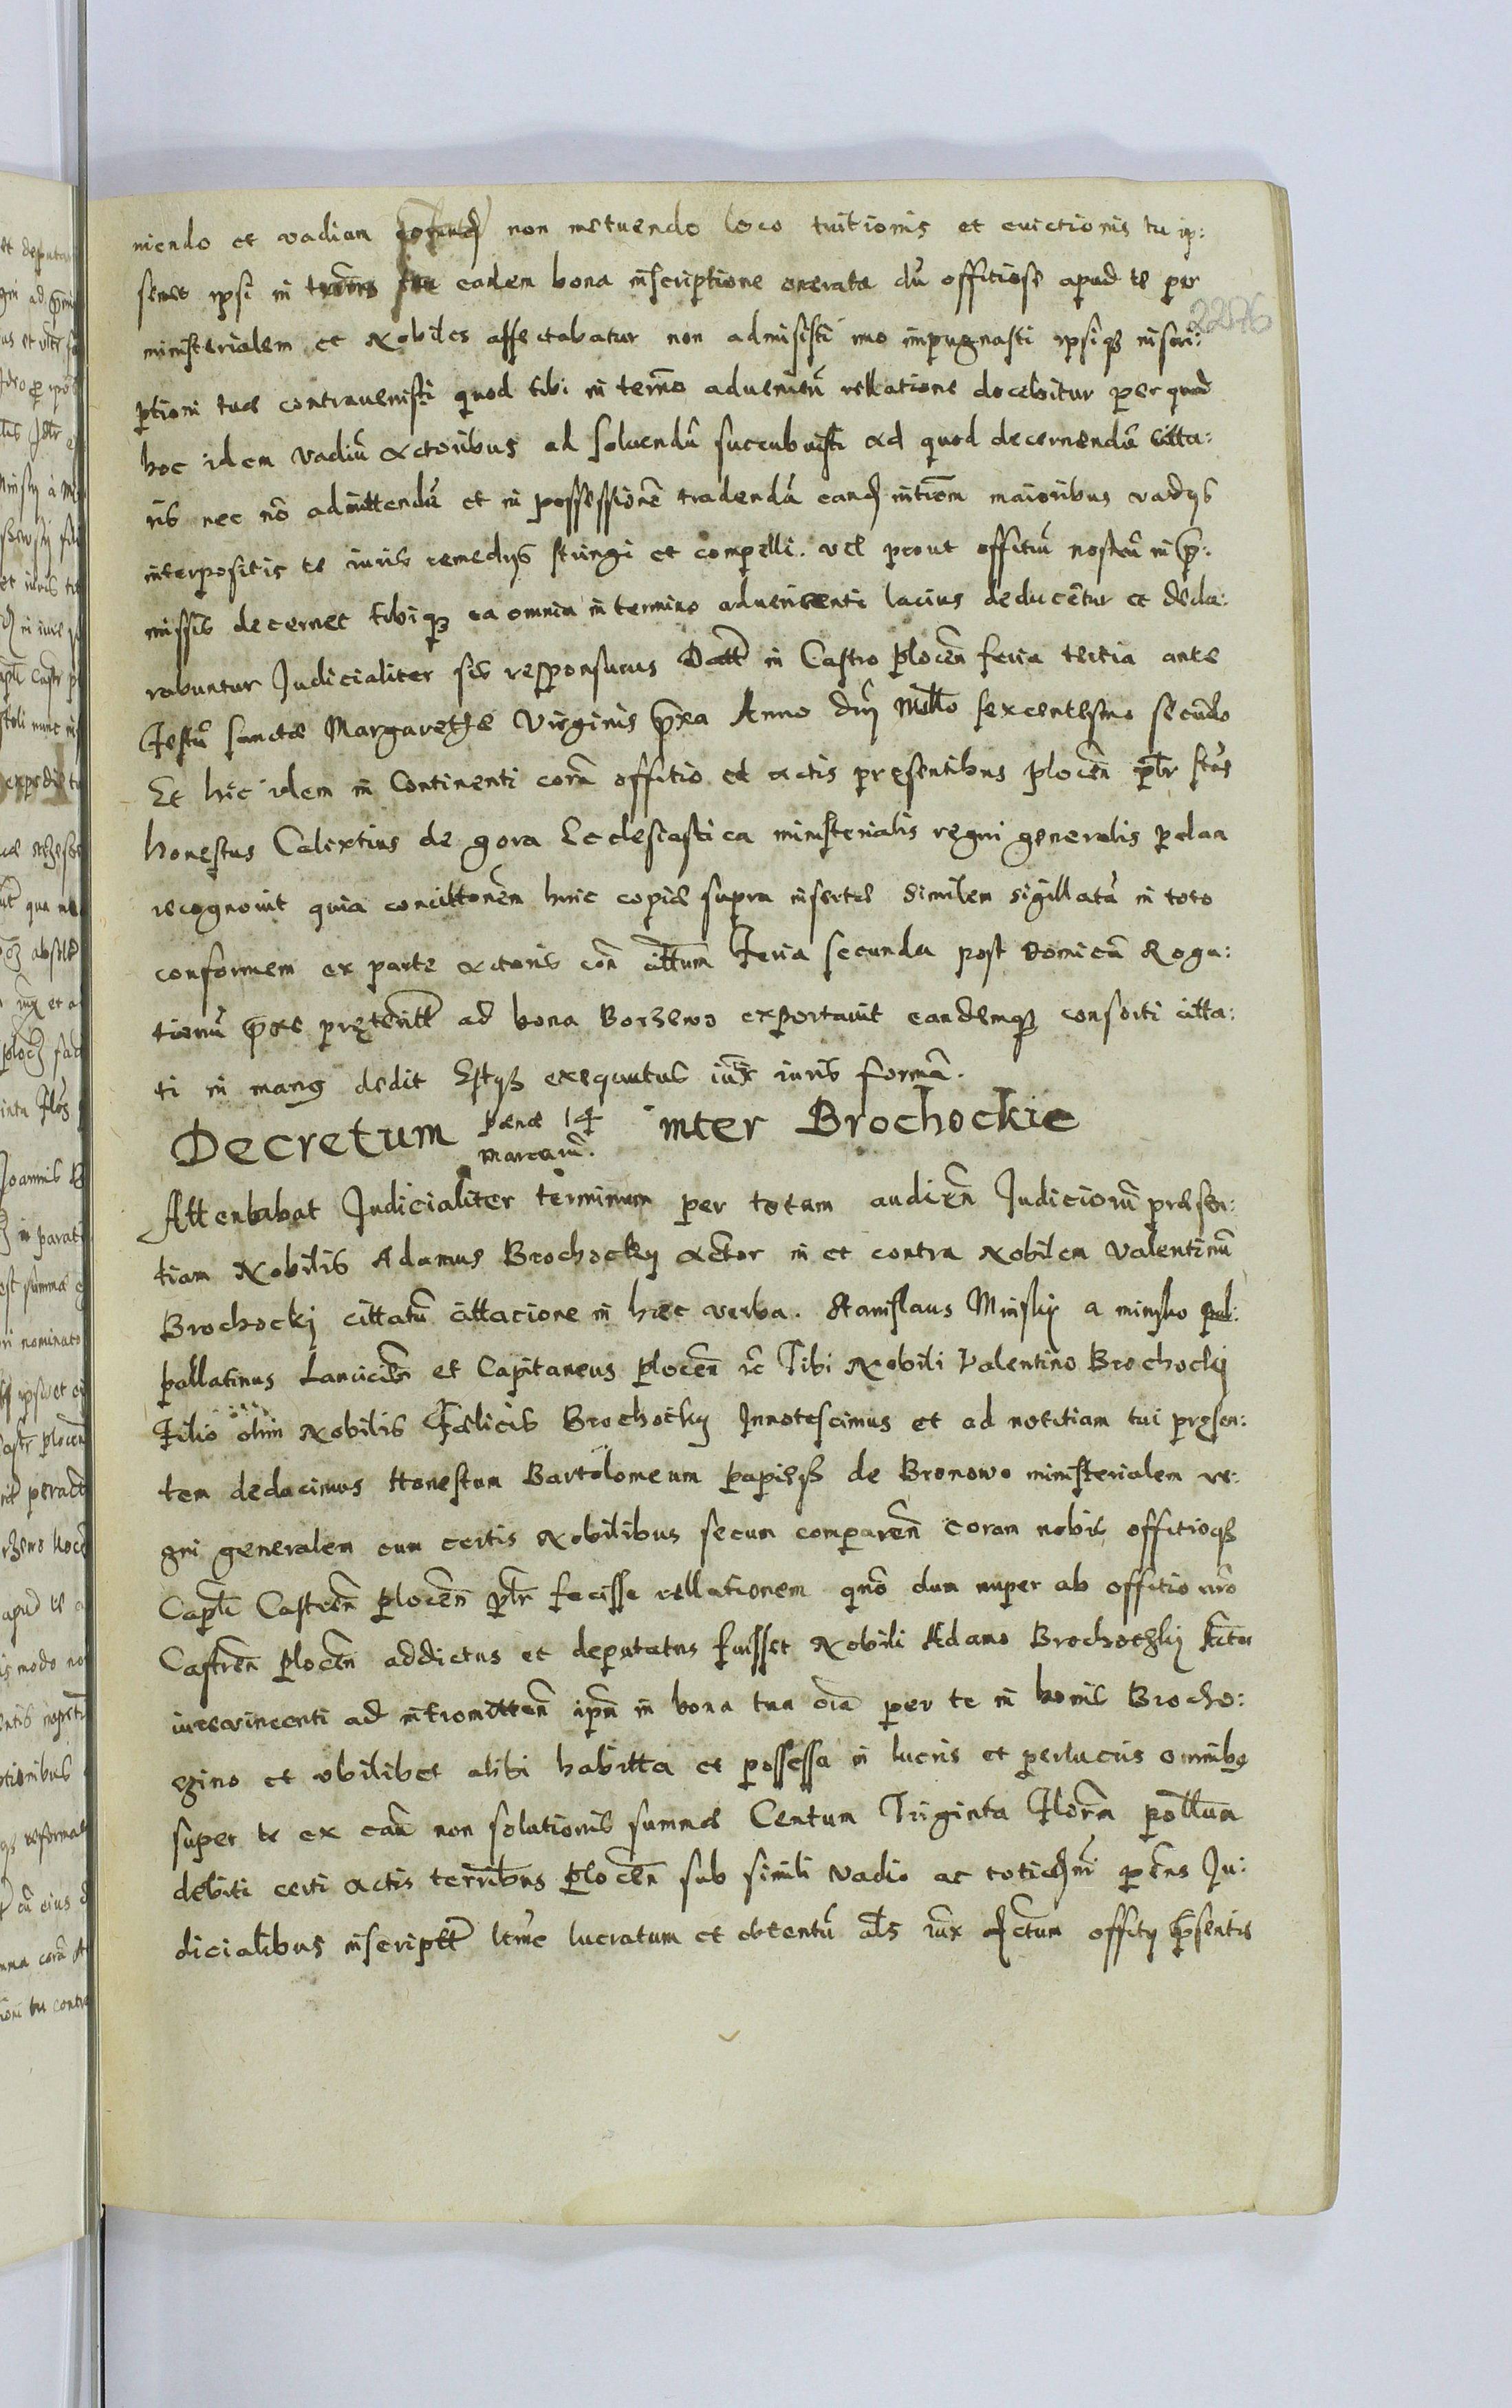 niendo et vadium non metuendo loco tuitionis et evictionis tu ip:
semet ipsi in eadem bona inscriptione onerata dũ offitiose apud te per
2276
ministerialem et Nobiles affectabatur non admisisti imo impugnasti ipsiq3 inscri:
ptioni tuæ contravenisti quod tibi in termõ advenień rellatione docebitur per quod
hoc idem vadiũ Actoribus ad solvendũ succubuisti Ad quod decernendũ citta:
ris nec nõ admittendũ et in possessionẽ tradendã eand intiom maioribus vadÿs
interpositis te iuris remedÿs stringi et compelli. vel prout offitiũ nostrũ in p̃:
missis decernet tibiq3 ea omnia in termino advenienti lacius deducẽtur et decla:
rabuntur Judicialiter sis responsurus Datt in Castro Plocẽn feria tertia ante
Festũ sanctæ Margarethæ Virginis p̃xa Anno dñi Millo sexcentesimo secundo
Et hic idem in Continenti corã offitio et actis pręsentibus Plocẽn p̃lr stãs
honestus Calixtius de gora Ecclesiastica ministerialis regni generalis palam
recognovit quia concittonẽm huic copiæ supra insertæ similem sigillatã in toto
conformem ex parte Actoris con cittum Feria secunda post Domicã Roga:
tionũ p̃xe pręteritt ad bona Borzewo exportavit eandemq3 consorti citta:
ti in manq dedit Estq3 exequutus iux̃ iuris formã.
Decretum pænæ 14 marcarũ. inter Brochockie
Attentabat Judicialiter terminum per totam audiẽn Judiciorũ præsen:
tiam Nobilis Adamus Brochockÿ Actor in et contra Nobilem Valentinũ
Brochockj cittatũ cittacione in hæc verba. Stanislaus Minskÿ a minsko pal:
pallatinus Lanciciẽn et Capitaneus Plocẽn rc̃ Tibi Nobili Valentino Brochockÿ
Filio olim Nobilis Fælicis Brochockÿ Innotescimus et ad notitiam tui pręsen:
tem deducimus Honestum Bartolomeum Papieß de Bronowo ministerialem re:
gni generalem cum certis Nobilibus secum comparẽn coram nobis offitioq3
Capłi Castreñ Plocẽn p̃lr fecisse rellationem quõ dum nuper ab offitio nrõ
Castreñ Plocẽn addictus et deputatus fuisset Nobili Adamo Brochockÿ Actori
iurevincenti ad intromitteñ ipm in bona tua oĩa per te in bonis Brocho:
czino et ubilibet alibi habitta et possessa in lucris et perlucris omnibq
super te ex cau non solutionis summæ Centum Triginta Florẽn pollum
debiti certi Actis terribus Plocẽn sub simili vadio ac
dicialibus inscriptt ltmẽ lucratum et obtentũ als iux̃ offitÿ p̃sentis